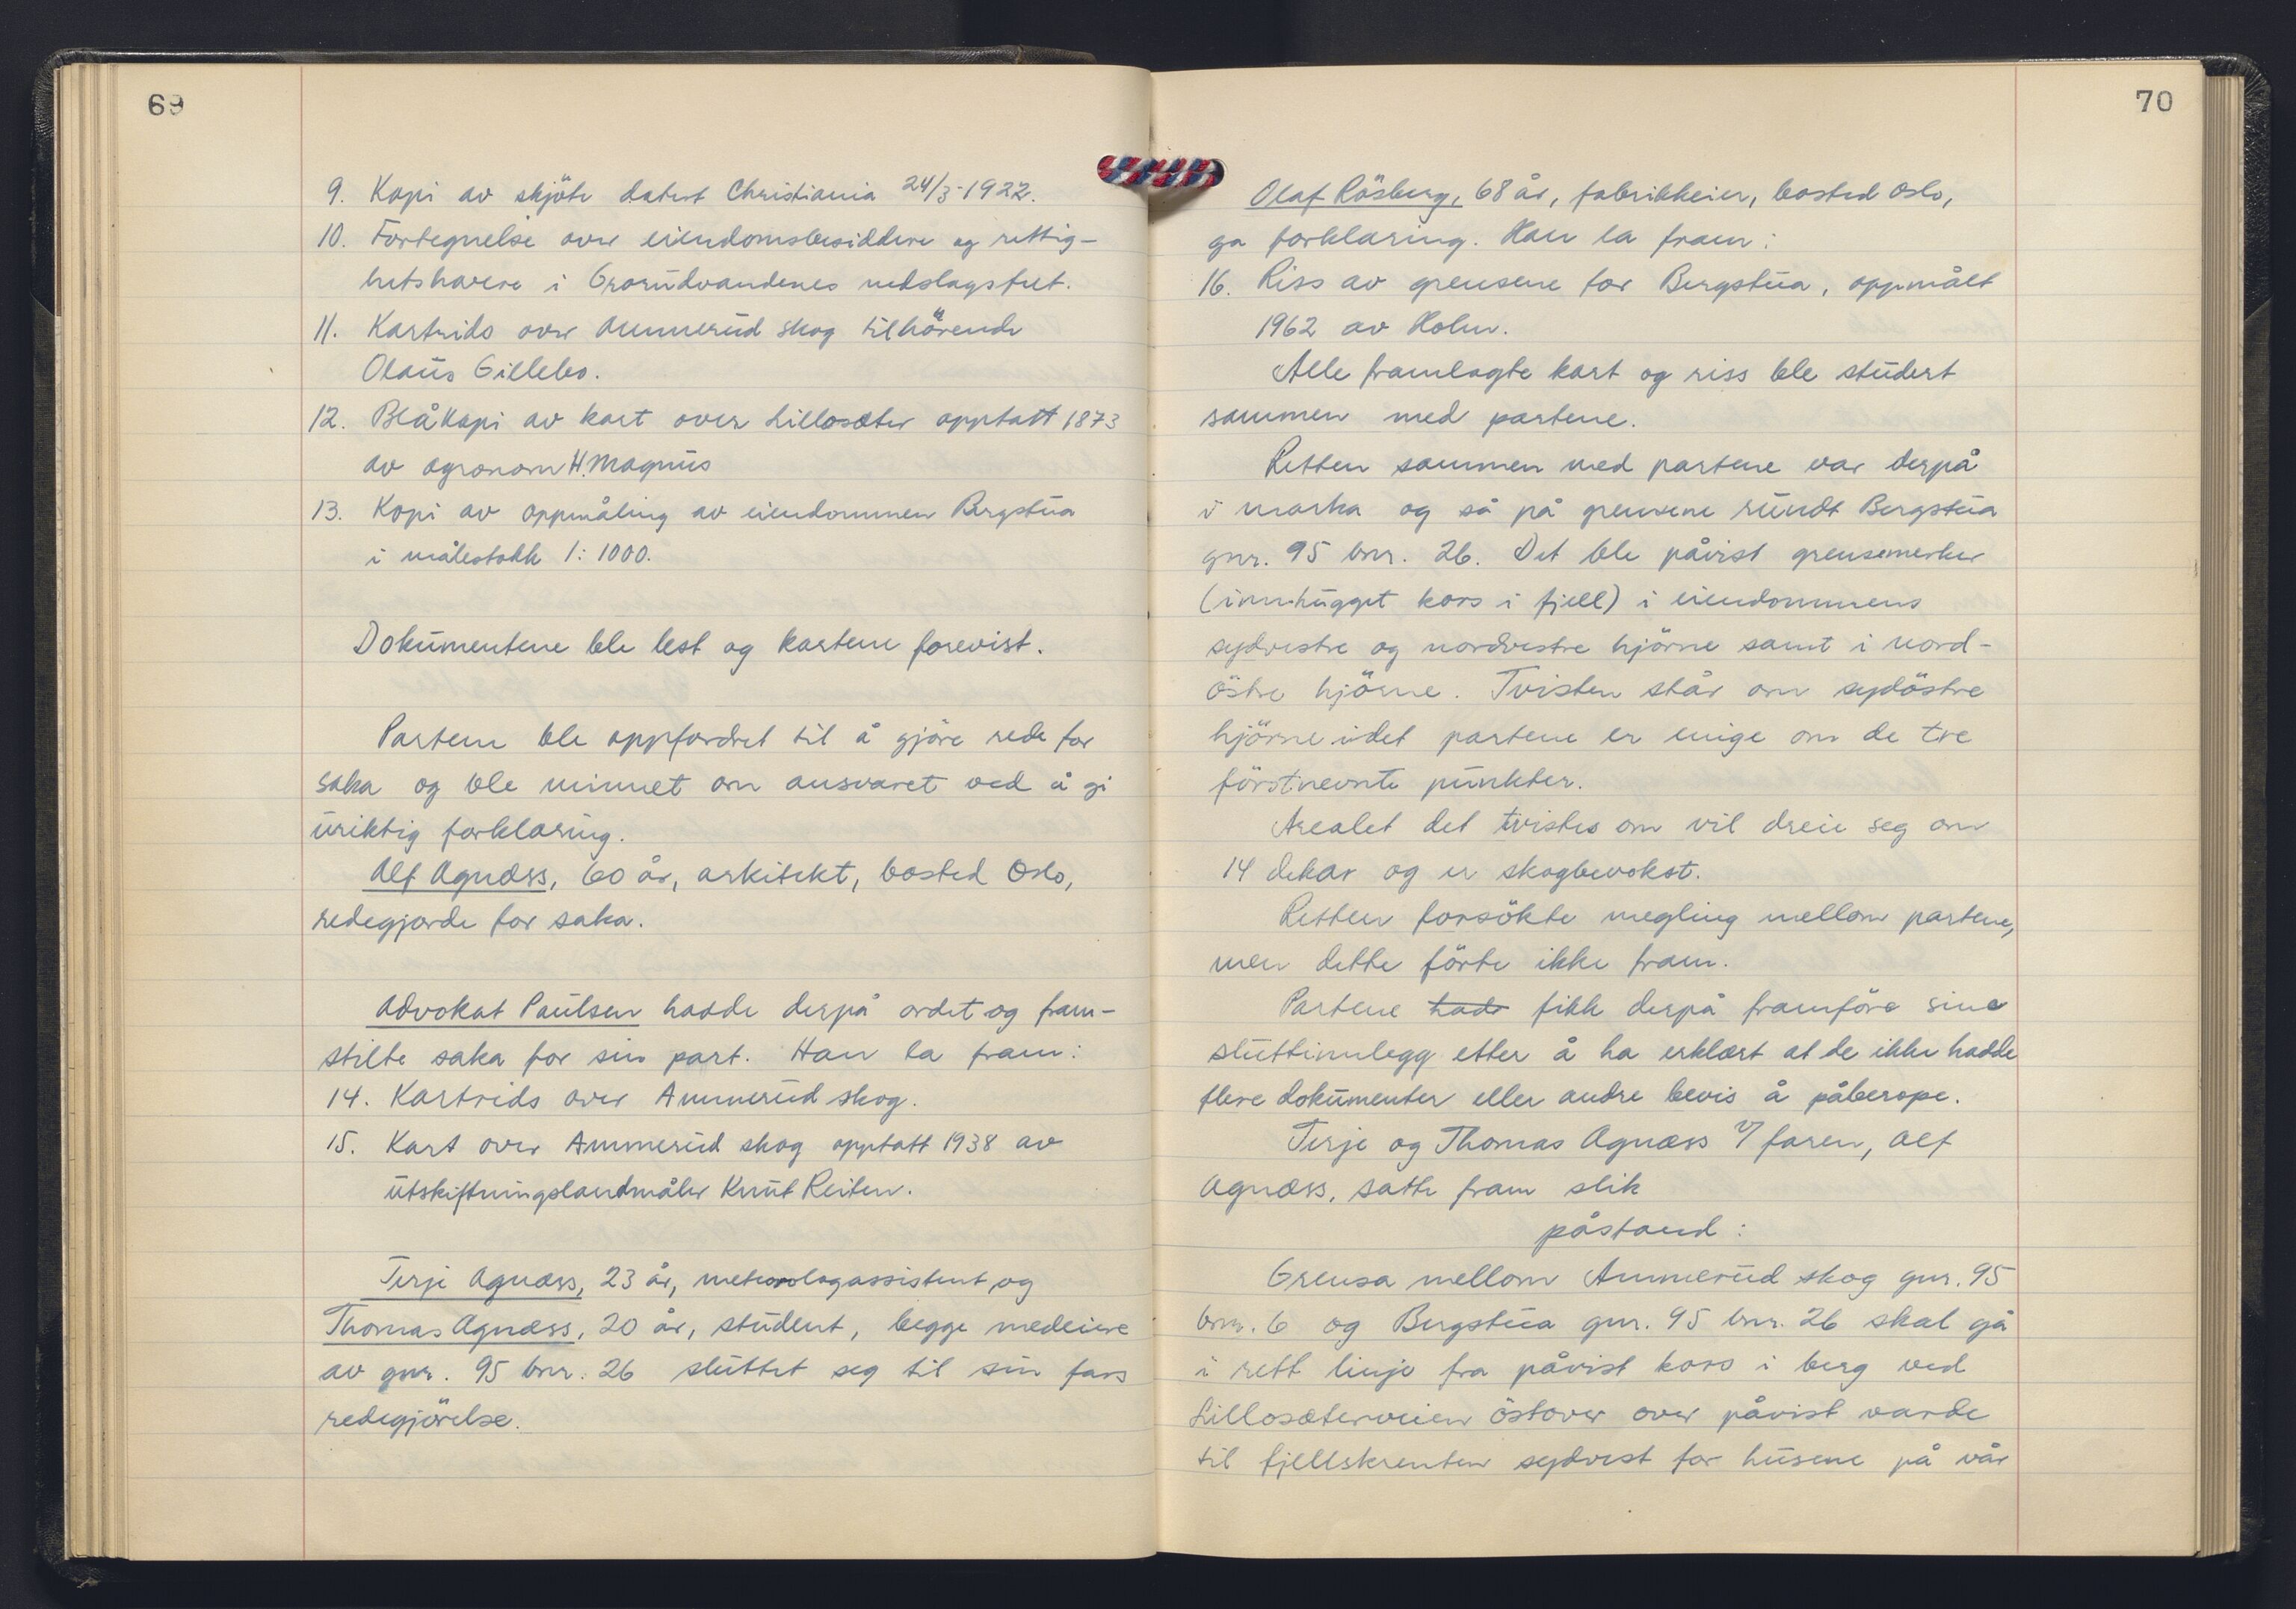 69
9. Kopi av skjöte datert Christiania 24/3-1922.
10. Fortegnelse over eiendomsbesiddere og rettig-
hetshavere i Grorudvandenes nedslagsfelt.
11. Kartrids over Ammerud skog tilhörende
Olaus Gillebo.
12. Blåkopi av kart over Lillosæter opptatt 1873
av agronom H. Magnus
13. Kopi av oppmåling av eiendommen Bergstua
i målestokk 1:1000.
Dokumentene ble lest og kartene forevist.
Partene ble oppfordret til å gjöre rede for
saka og ble minnet om ansvaret ved å gi
uriktig forklaring.
Alf Agnæss, 60 år, arkitekt, bosted Oslo,
redegjorde for saka.
Advokat Paulsen hadde derpå ordet og fram-
stilte saka for sin part. Han la fram:
14. Kartrids over Ammerud skog.
15. Kart over Ammerud skog opptatt 1938 av
utskiftningslandmåler Knut Reiten.
Terje Agnæss, 23 år, meteorologassistent og
Thomas Agnæss, 20 år, student, begge medeiere
av gnr. 95 bnr. 26 sluttet seg til sin fars
redegjörelse.
70
Olaf Rösberg, 68 år, fabrikkeier, bosted Oslo,
ga forklaring. Han la fram:
16. Riss av grensene for Bergstua, oppmålt
1962 av Holm.
Alle framlagte kart og riss ble studert
sammen med partene.
Retten sammen med partene var derpå
i marka og så på grensene rundt Bergstua
gnr. 95 bnr. 26. Det ble påvist grensemerker
(innhugget kors i fjell) i eiendommens
sydvestre og nordvestre hjörne samt i nord-
östre hjörne. Tvisten står om sydöstre
hjörne idet partene er enige om de tre
förstnevnte punkter.
Arealet det tvistes om vil dreie seg om
14 dekar og er skogbevokst.
Retten forsökte megling mellom partene,
men dette förte ikke fram.
Partene hade fikk derpå framföre sine
sluttinnlegg etter å ha erklært at de ikke hadde
flere dokumenter eller andre bevis å påberope.
Terje og Thomas Agnæss v/ faren, Alf
Agnæss, satte fram slik
påstand:
Grensa mellom Ammerud skog gnr. 95
bnr. 6 og Bergstua gnr. 95 bnr. 26 skal gå
i rett linje fra påvist kors i berg ved
Lillosæterveien östover over påvist varde
til fjellskrenten sydvest for husene på vår